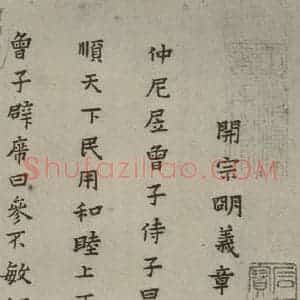 開宗明義章
仲尼居曾子侍子曰
順天下民用和睦上下
曾子辟席曰參不敏
Shufaziliao.COM